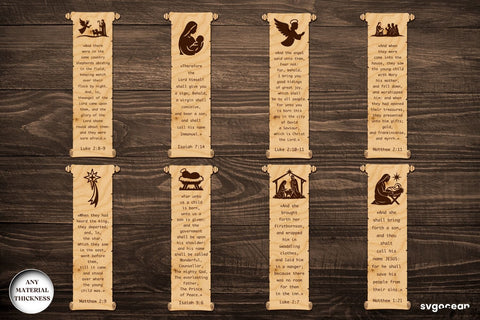 «And there
were in the
same country
shepherds abiding
in the field,
keeping watch
over their
flock by night.
And, lo, the
angel of the
Lord came upon
them, and the
glory of the
Lord shone
round about them:
and they were
sore afraid.»
Luke 2:8-9
«Therefore
the
Lord himself
shall give you
a sign; Behold,
a virgin shall
conceive,
and bear a son,
and shall
call his name
Immanuel.»
Isaiah 7:14
«And the angel
said unto them,
Fear not:
for, behold,
I bring you
good tidings
of great joy,
which shall
be to all people.
For unto you
is born this day
in the city
of David
a Saviour,
which is Christ
the Lord.»
Luke 2:10-11
«And when
they were
come into the
house, they saw
the young child
with Mary
his mother,
and fell down,
and worshipped
him: and when
they had opened
their treasures,
they presented
unto him gifts;
gold,
and frankincense,
and myrrh.»
Matthew 2:11
«When they had
heard the king,
they departed;
and, lo,
the star,
which they saw
in the east,
went before
them,
till it came
and stood
over where
the young
child was.»
Matthew 2:9
«For unto
us a child
is born,
unto us a
son is given:
and the
government
shall be upon
his shoulder:
and his name
shall be called
Wonderful,
Counsellor,
The mighty God,
The everlasting
Father,
The Prince
of Peace.»
Isaiah 9:6
«And she
brought
forth her
firstborn son,
and wrapped
him in
swaddling
clothes,
and laid him
in a manger;
because there
was no room
for them
in the inn.»
Luke 2:7
«And she
shall bring
forth a son,
and thou
shalt
call his
name JESUS:
for he shall
save his
people from
their sins.»
Matthew 1:21
ANY
MATERIAL
THICKNESS
svgocean